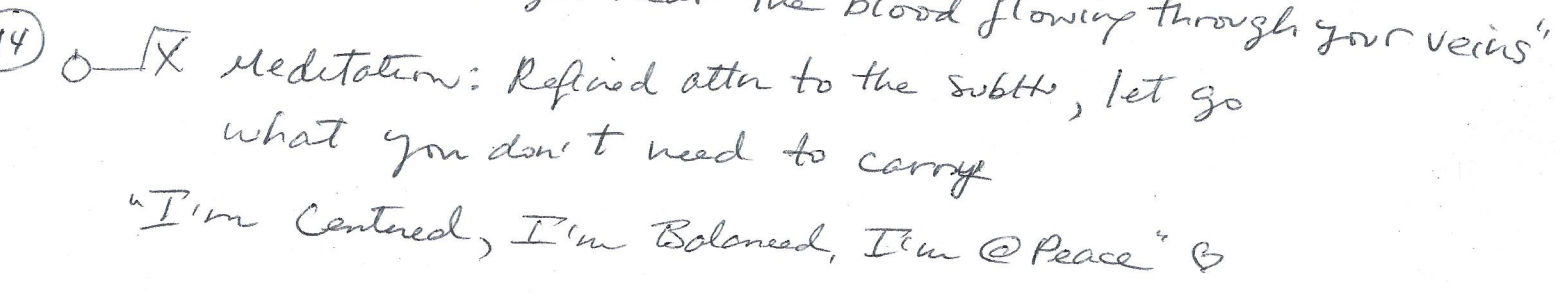 the blood flowing through your veins"
14 Meditation: Refined attn to the subtle, let go
what you don't need to carry
"I'm Centered, I'm Balanced, I'm @ Peace" ♡